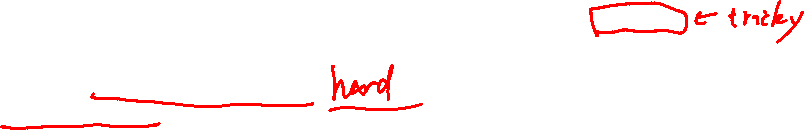 ← tricky
hard